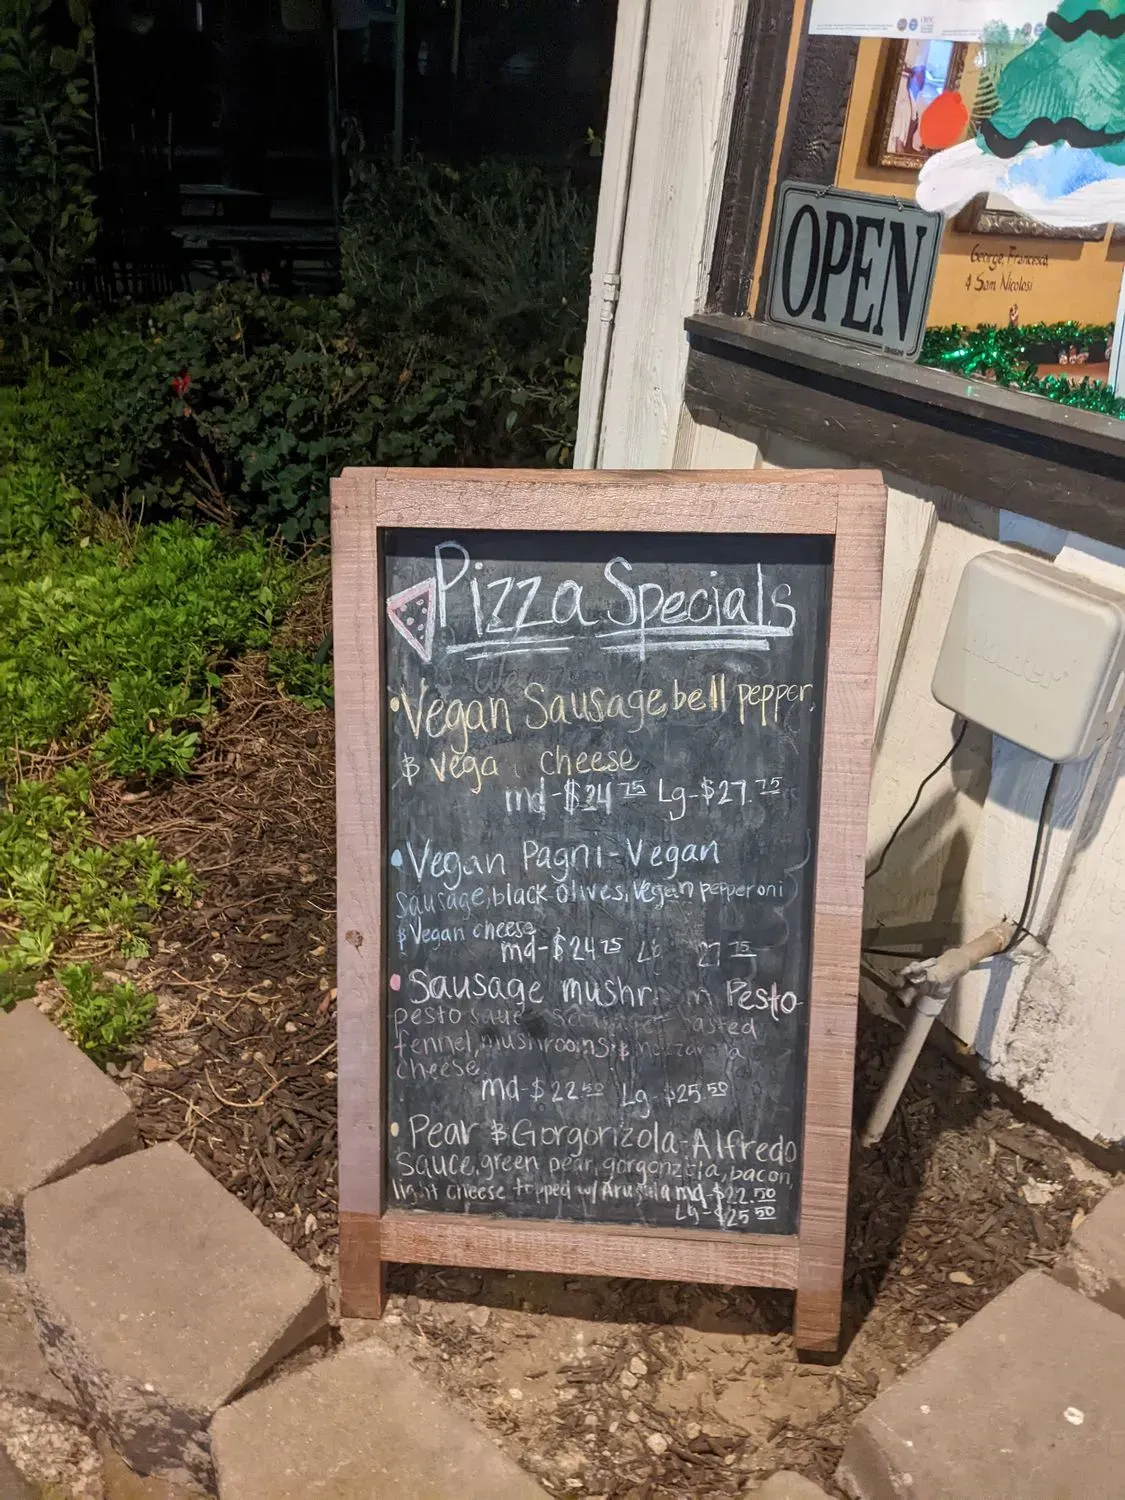 OPEN
George, Francesca,
& Sam Nicolosi
Pizza Specials
• Vegan Sausage bell pepper,
& vega cheese
md-$24 75 Lg-$27.75
• Vegan Pagni-Vegan
sausage, black olives, Vegan pepperoni
& Vegan cheese
md-$24 75 27 75
• Sausage mushr m Pesto-
pesto
fennel, mushrooms &
cheese
md-$22.50 Lg-$25 50
• Pear & Gorgonizola-Alfredo
Sauce, green pear, gorgonzola, bacon,
light cheese topped w/ Arugula md-$22.50
Lg-$25 50